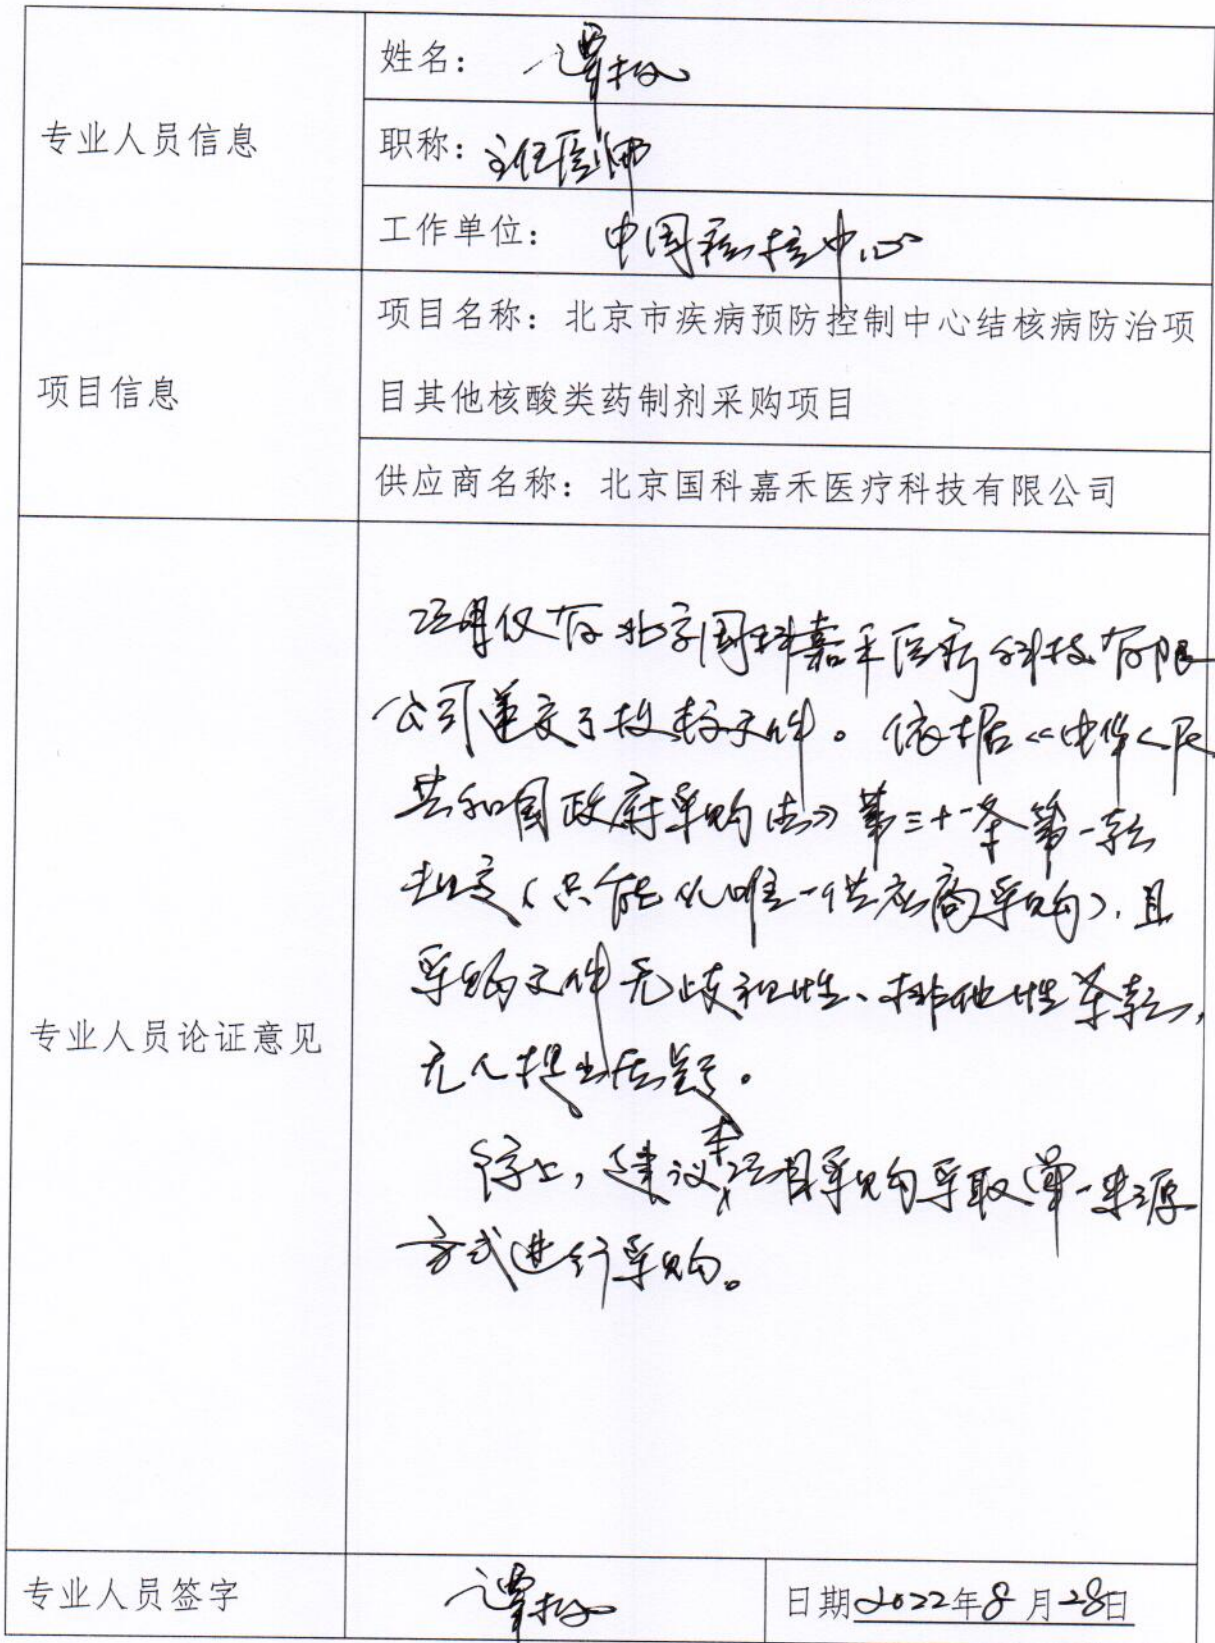 专业人员信息
姓名：谭
职称：主任医师
工作单位：中国疾控中心
项目信息
项目名称：北京市疾病预防控制中心结核病防治项
目其他核酸类药制剂采购项目
供应商名称：北京国科嘉禾医疗科技有限公司
专业人员论证意见
项目仅有北京国科嘉禾医疗科技有限
公司递交了投标文件。依据《中华人民
共和国政府采购法》第三十一条第一款
规定（只能从唯一供应商采购），且
采购文件无歧视性、排他性条款，
无人提出质疑。
综上，建议本项目采购采取单一来源
方式进行采购。
专业人员签字
谭
日期2022年8月28日